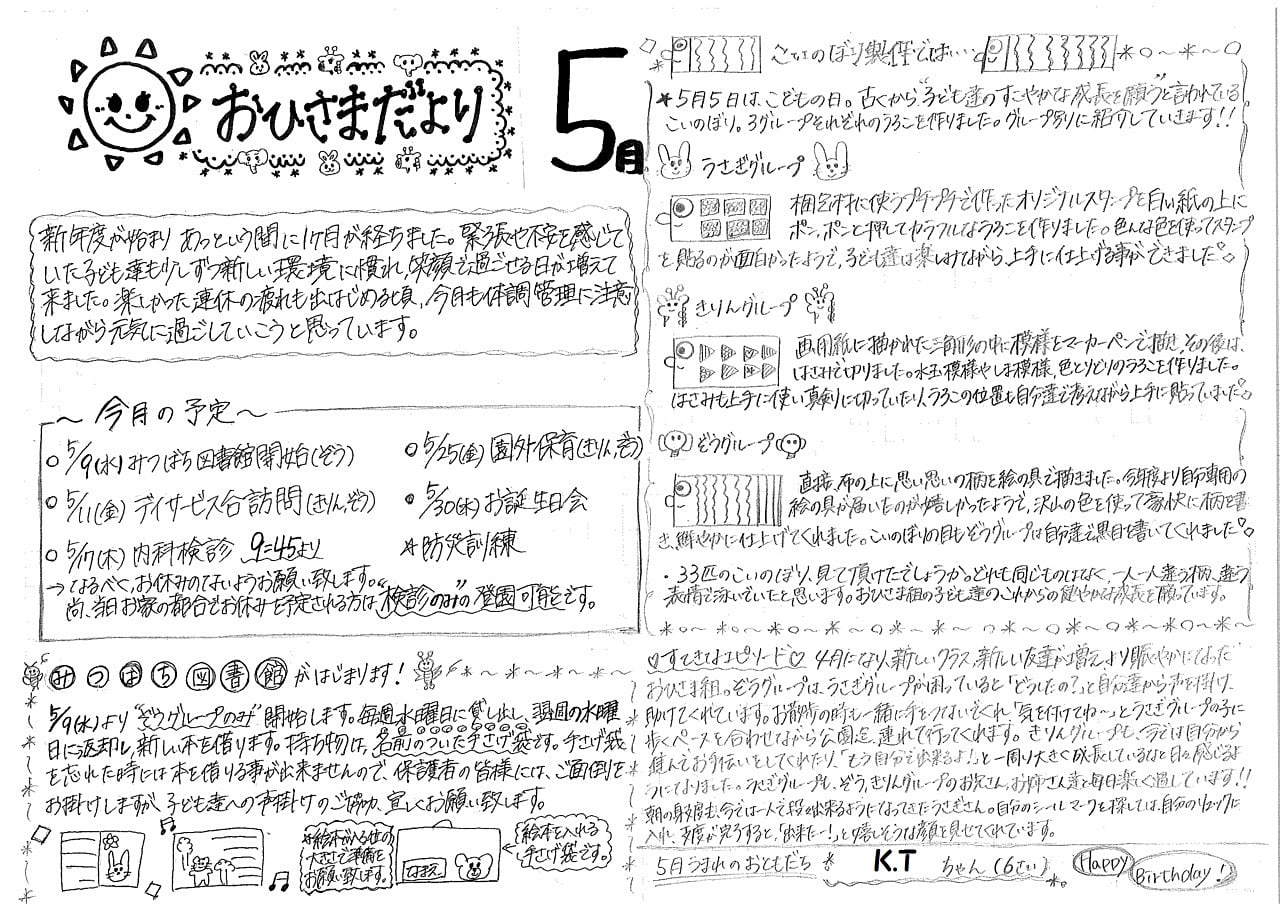 おひさまだより
5月
新年度が始まり あっという間に1ヶ月が経ちました。緊張や不安を感じて
いた子ども達も少しずつ新しい環境に慣れ、笑顔で過ごせる日が増えて
来ました。楽しかった連休の疲れも出はじめる頃、今月も体調管理に注意
しながら元気に過ごしていこうと思っています。
～今月の予定～
○5/9(水)みつばち図書館開始(ぞう)
○5/11(金)デイサービス谷訪問(きりん,ぞう)
○5/17(木)内科検診 9:45より
→なるべく、お休みのないようお願い致します。
尚、当日お家の都合でお休みを予定される方は、"検診のみ"の登園可能です。
○5/25(金)園外保育(きりん,ぞう)
○5/30(水)お誕生日会
☆防災訓練
みつばち図書館がはじまります!
5/9(水)より"ぞうグループのみ"開始します。毎週水曜日に貸し出し、翌週の水曜
日に返却し、新しい本を借ります。持ち物は、名前のついた手さげ袋です。手さげ袋
を忘れた時には本を借りる事が出来ませんので、保護者の皆様には、ご面倒を
お掛けしますが、子ども達への声掛けのご協力、宜しくお願い致します。
絵本が入る位の
大きさで準備を
お願い致します。
なまえ
絵本を入れる
手さげ袋です。
こいのぼり製作では…
*5月5日は、こどもの日。古くから"子ども達のすこやかな成長を願う"と言われている
こいのぼり。3グループそれぞれのうろこを作りました。グループ別に紹介していきます!!
うさぎグループ
梱包材に使うプチプチで作ったオリジナルスタンプを白い紙の上に
ポン、ポンと押してカラフルなうろこを作りました。色んな色を使ってスタンプ
を貼るのが面白かったようで、子ども達は楽しみながら、上手に仕上げる事ができました♡
きりんグループ
画用紙に描かれた三角形の中に模様をマーカーペンで描き、その後は、
はさみで切りました。水玉模様やしま模様、色とりどりのうろこを作りました。
はさみも上手に使い真剣に切っていたり、うろこの位置も自分達で考えながら上手に貼っていました♡
ぞうグループ
直接、布の上に思い思いの柄を絵の具で描きました。今年度より自分専用の
絵の具が届いたのが嬉しかったようで、沢山の色を使って豪快に柄を書
き、鮮やかに仕上げてくれました。こいのぼりの目もぞうグループは自分達で黒目を書いてくれました♡
・33匹のこいのぼり、見て頂けたでしょうか。どれも同じものはなく、一人一人違う柄、違う
表情で泳いでいたと思います。おひさま組の子ども達のこれからの健やかな成長を願っています。
♡すてきなエピソード♡ 4月になり、新しいクラス、新しい友達が増え、より賑やかになった
おひさま組。ぞうグループは、うさぎグループが困っていると「どうしたの?」と自分達から声を掛け、
助けてくれています。お散歩の時も一緒に手をつないでくれ、「気を付けてね～」とうさぎグループの子に
歩くペースを合わせながら公園迄、連れて行ってくれます。きりんグループも、今では自分から
進んでお手伝いをしてくれたり、「もう自分で出来るよ!」と一周り大きく成長しているなと日々感じるよ
うになりました。うさぎグループも、ぞう、きりんグループのお兄さん、お姉さん達と毎日楽しく過しています!!
朝の身支度も、今では一人で段々出来るようになってきたうさぎさん。自分のシールマークを探しては、自分のリュックに
入れ、支度が完了すると、「出来たー!」と嬉しそうな顔を見せてくれています。
5月うまれのおともだち
K.T ちゃん(6さい)
Happy
Birthday!